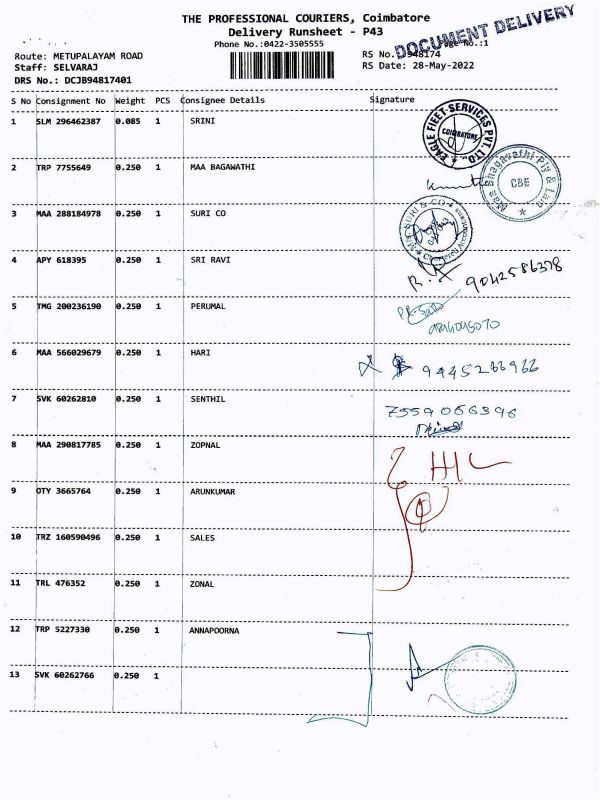 THE PROFESSIONAL COURIERS, Coimbatore
Delivery Runsheet - P43
Phone No.:0422-3505555
DOCUMENT DELIVERY
Page No.:1
Route: METUPALAYAM ROAD
RS No.: J948174
Staff: SELVARAJ
RS Date: 28-May-2022
DRS No.: DCJB94817401
S No Consignment No Weight PCS Consignee Details Signature
1 SLM 296462387 0.085 1 SRINI
EAGLE FLEET SERVICES PVT. LTD.,
COIMBATORE
2 TRP 7755649 0.250 1 MAA BAGAWATHI
Maa Bhagavathi Ply & Lam
CBE
3 MAA 288184978 0.250 1 SURI CO
M/s. SURI & CO
Chartered Accountants
4 APY 618395 0.250 1 SRI RAVI
9042586378
5 TMG 200236190 0.250 1 PERUMAL
6 MAA 566029679 0.250 1 HARI
9445266966
7 SVK 60262810 0.250 1 SENTHIL
7559066396
8 MAA 290817785 0.250 1 ZOPNAL
9 OTY 3665764 0.250 1 ARUNKUMAR
10 TRZ 160590496 0.250 1 SALES
11 TRL 476352 0.250 1 ZONAL
12 TRP 5227330 0.250 1 ANNAPOORNA
13 SVK 60262766 0.250 1